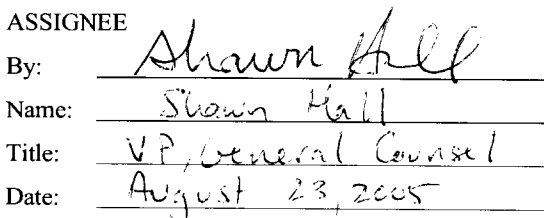 ASSIGNEE
By: Shawn Hall
Name: Shawn Hall
Title: VP, General Counsel
Date: August 23, 2005